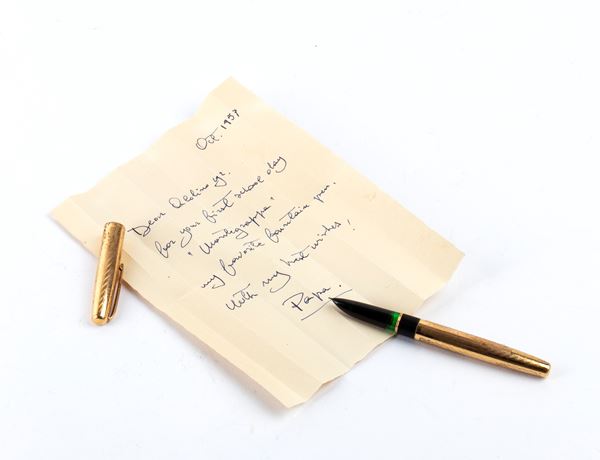 Oct. 1957
Dear Aldino yr.
for your first school day
"Montegrappa"
my favorite fountain pen.
With my best wishes!
Papa.